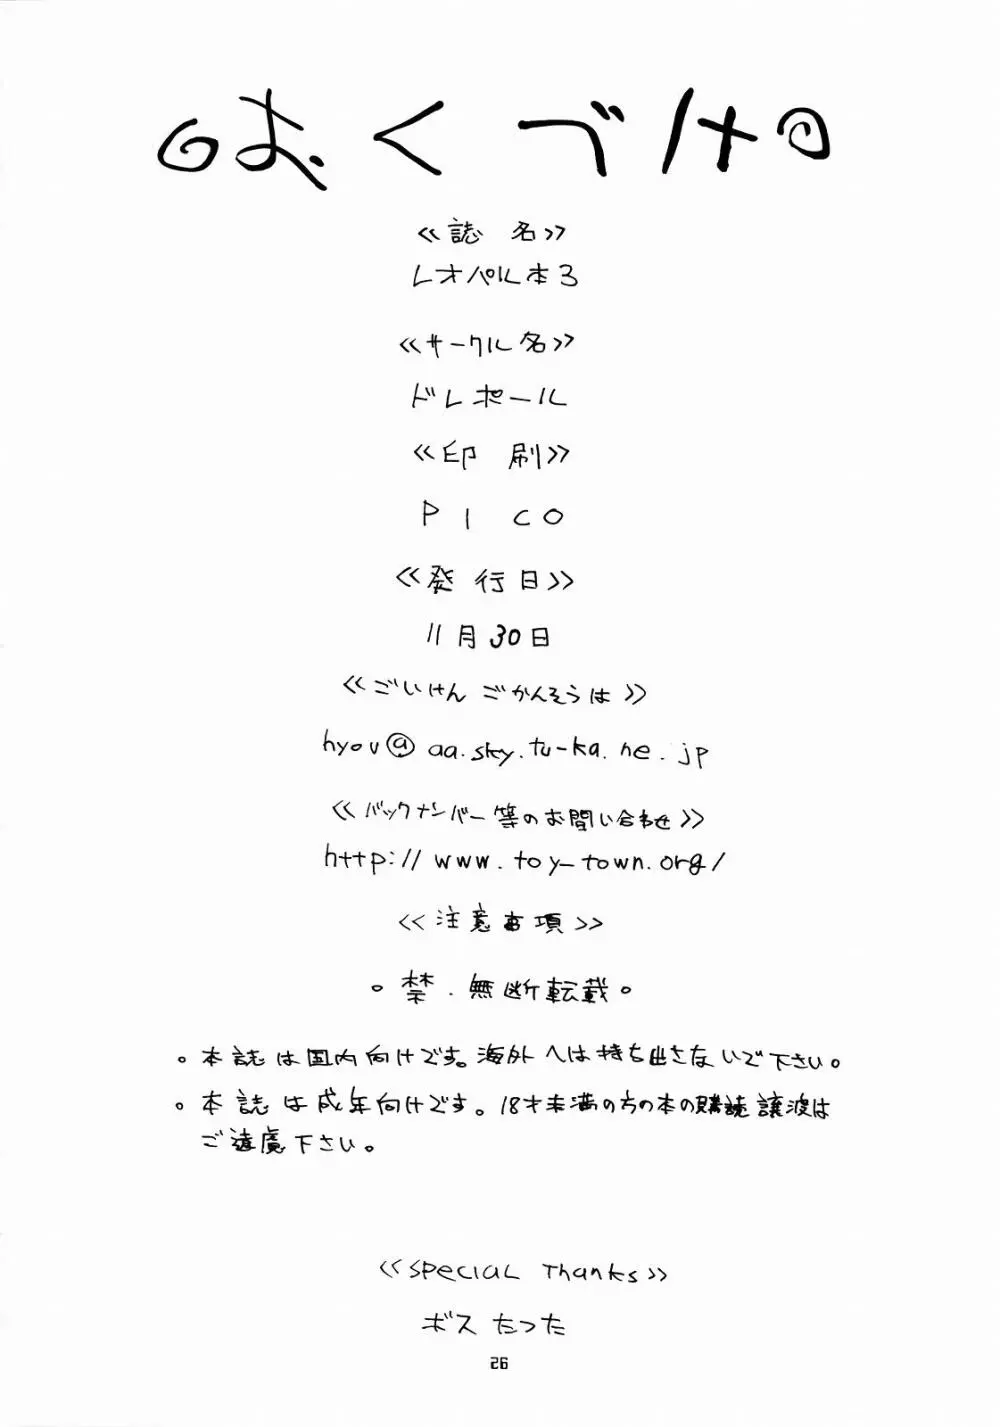 おくづけ
≪誌名≫
レオパル本3
≪サークル名≫
ドレポール
≪印刷≫
PICO
≪発行日≫
11月30日
≪ごいけん ごかんそうは≫
hyou@aa.sky.tu-ka.ne.jp
≪バックナンバー等のお問い合わせ≫
http://www.toy-town.org/
≪注意事項≫
。禁.無断転載。
。本誌は国内向けです。海外へは持ち出さないで下さい。
。本誌は成年向けです。18才未満の方の本の購読譲渡は
ご遠慮下さい。
≪SPECIAL Thanks≫
ボス たつた
26